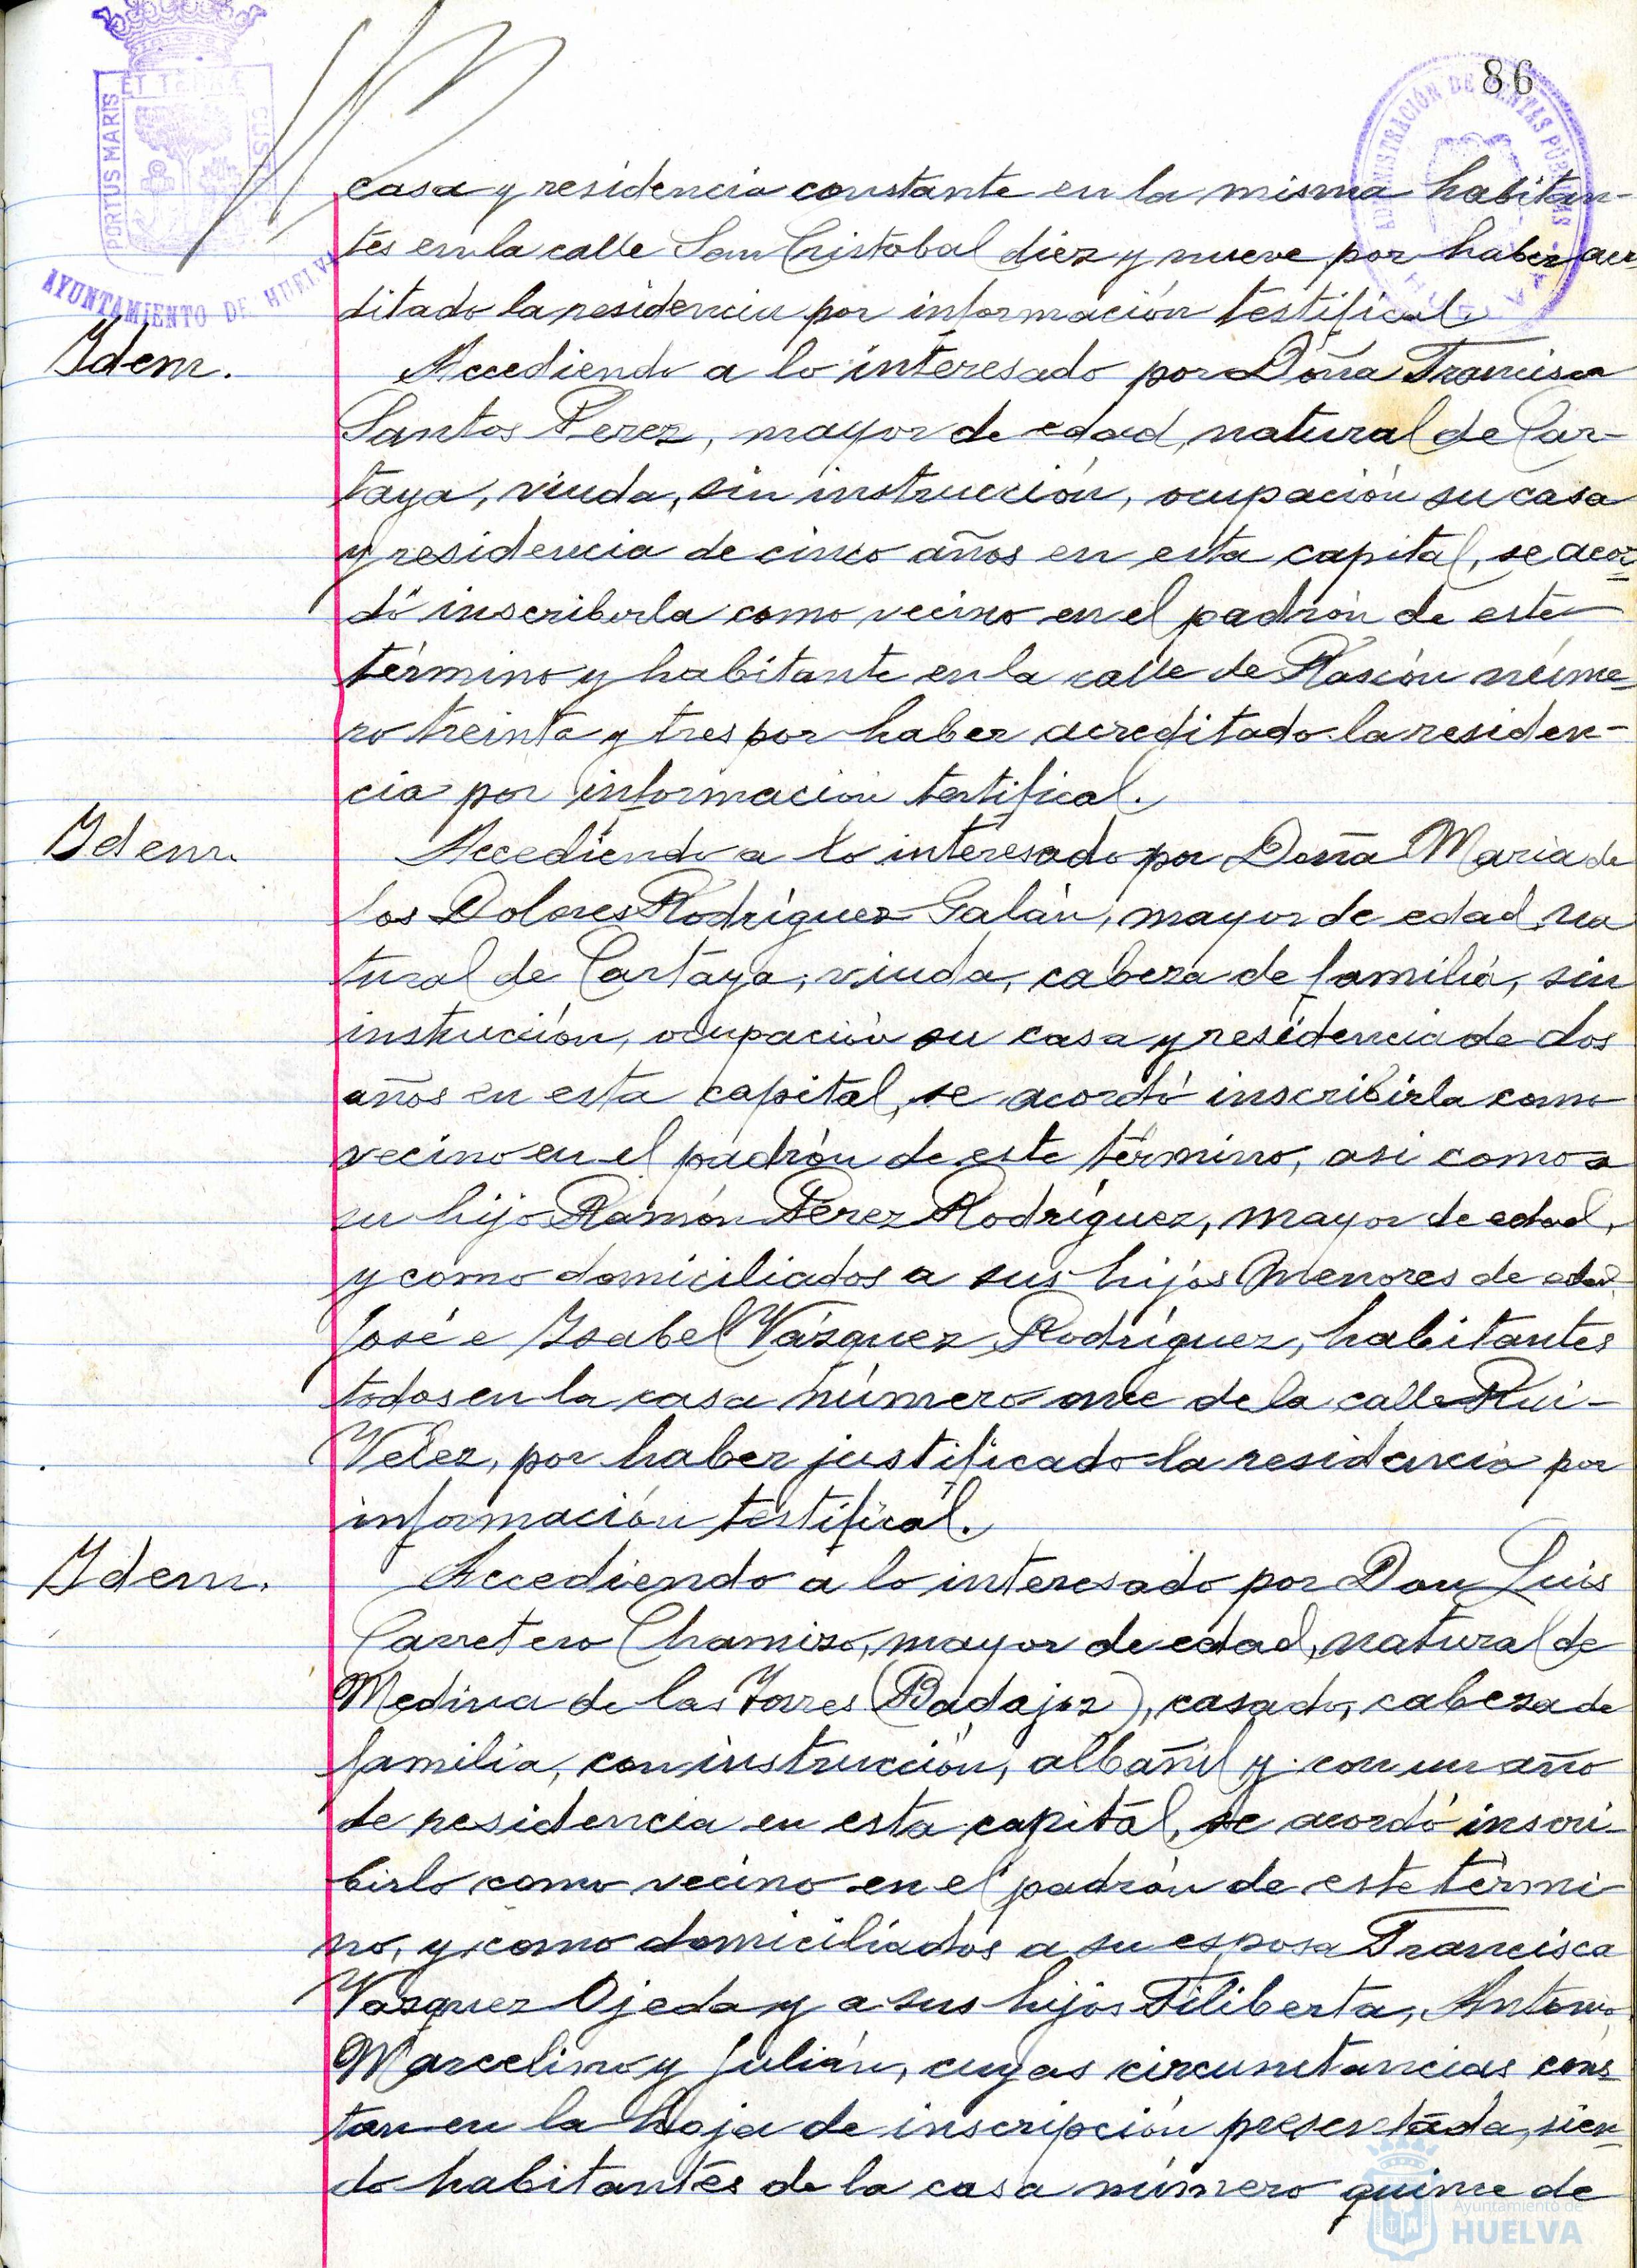 86
PORTUS MARIS
ET TERRÆ
CUSTODIA
AYUNTAMIENTO DE HUELVA
ADMINISTRACIÓN DE RENTAS PÚBLICAS
HUELVA
casa y residencia constante en la misma habitan-
tes en la calle San Cristobal diez y nueve por haber acre
ditado la residencia por información testifical.
Idem.
Accediendo a lo interesado por Doña Francisca
Santos Perez, mayor de edad, natural de Car-
taya, viuda, sin instrucción, ocupación su casa
y residencia de cinco años en esta capital, se acor
dó inscribirla como vecino en el padrón de este
término y habitante en la calle de Rascón núme-
ro treinta y tres por haber acreditado la residen-
cia por información testifical.
Idem.
Accediendo a lo interesado por Doña Maria de
los Dolores Rodríguez Galán, mayor de edad, na
tural de Cartaya, viuda, cabeza de familia, sin
instrucción, ocupación su casa y residencia de dos
años en esta capital, se acordó inscribirla como
vecino en el padrón de este término, asi como a
su hijo Ramón Perez Rodríguez, mayor de edad,
y como domiciliados a sus hijos menores de edad
José e Isabel Vázquez Rodríguez, habitantes
todos en la casa número once de la calle Rui-
Velez, por haber justificado la residencia por
información testifical.
Idem.
Accediendo a lo interesado por Don Luis
Carretero Chamizo, mayor de edad, natural de
Medina de las Torres (Badajoz), casado, cabeza de
familia, con instrucción, albañil y con un año
de residencia en esta capital, se acordó inscri-
birlo como vecino en el padrón de este térmi
no, y como domiciliados a su esposa Francisca
Vazquez Ojeda y a sus hijos Filiberta, Antonio
Marcelino y Julián, cuyas circunstancias cons
tan en la hoja de inscripción presentada, sien-
do habitantes de la casa número quince de
Ayuntamiento de
HUELVA